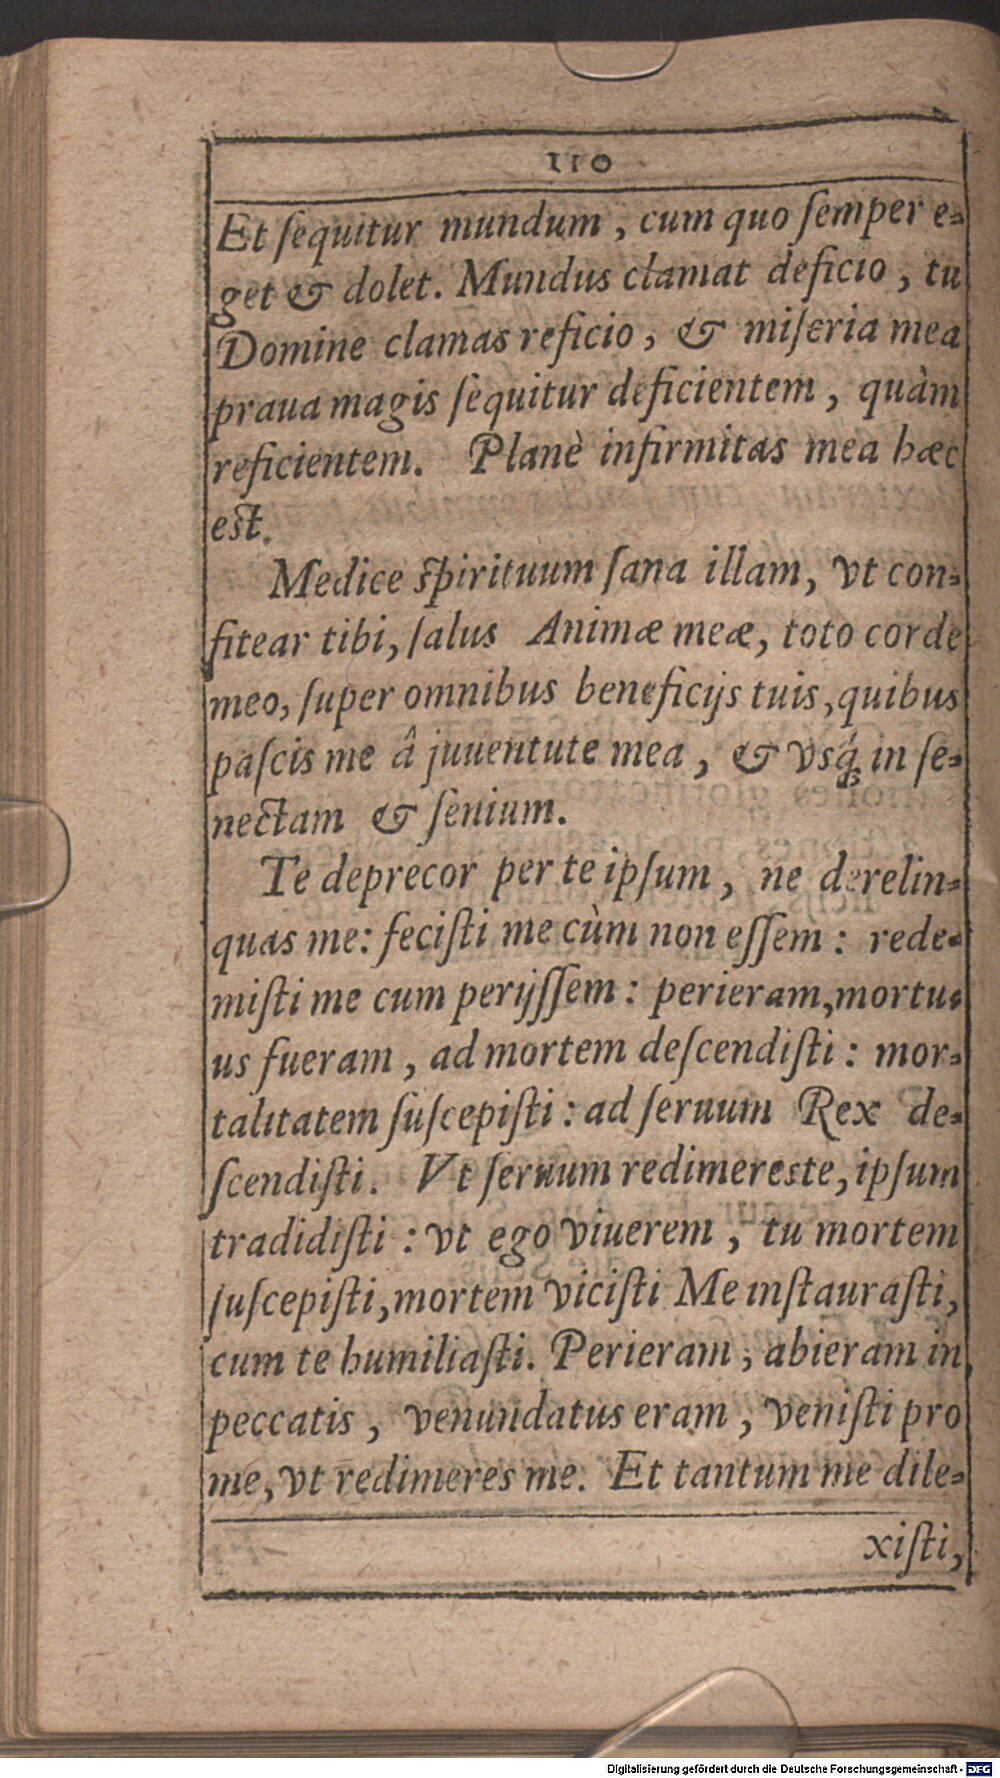 110
Et ſequitur mundum, cum quo ſemper e-
get & dolet. Mundus clamat deficio, tu
Domine clamas reficio, & miſeria mea
praua magis ſequitur deficientem, quàm
reficientem. Planè infirmitas mea hæc
est.
Medice spirituum ſana illam, vt con-
fitear tibi, ſalus Animæ meæ, toto corde
meo, ſuper omnibus beneficijs tuis, quibus
paſcis me â juuentute mea, & vsq́; in ſe-
nectam & ſenium.
Te deprecor per te ipſum, ne derelin-
quas me: feciſti me cùm non eſſem: rede-
miſti me cum perijſſem: perieram, mortu-
us fueram, ad mortem deſcendiſti: mor-
talitatem ſuſcepiſti: ad ſeruum Rex de-
ſcendiſti. Vt ſeruum redimereste, ipſum
tradidiſti: vt ego viuerem, tu mortem
ſuſcepiſti, mortem viciſti Me inſtauraſti,
cum te humiliaſti. Perieram, abieram in
peccatis, venundatus eram, veniſti pro
me, vt redimeres me. Et tantum me dile-
xiſti,
Digitalisierung gefördert durch die Deutsche Forschungsgemeinschaft - DFG